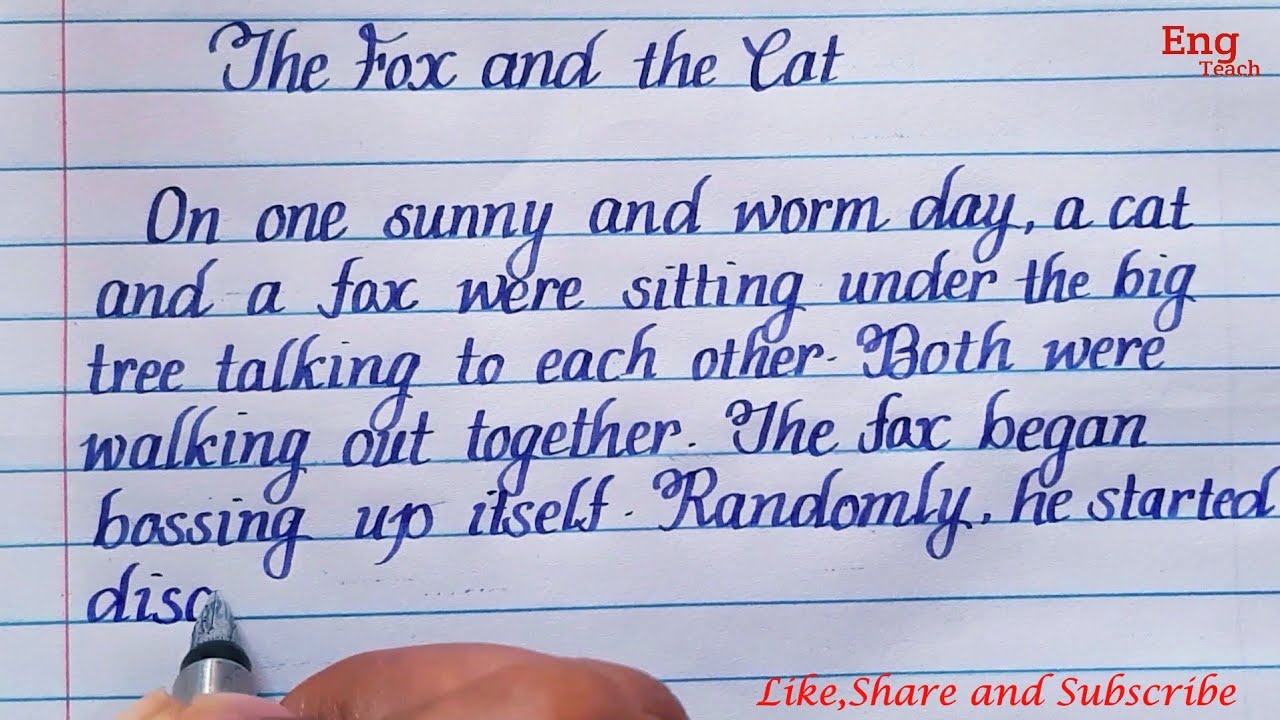 The Fox and the Cat
Eng
Teach
On one sunny and worm day, a cat
and a fox were sitting under the big
tree talking to each other. Both were
walking out together. The fox began
bossing up itself. Randomly, he started
disc
Like,Share and Subscribe